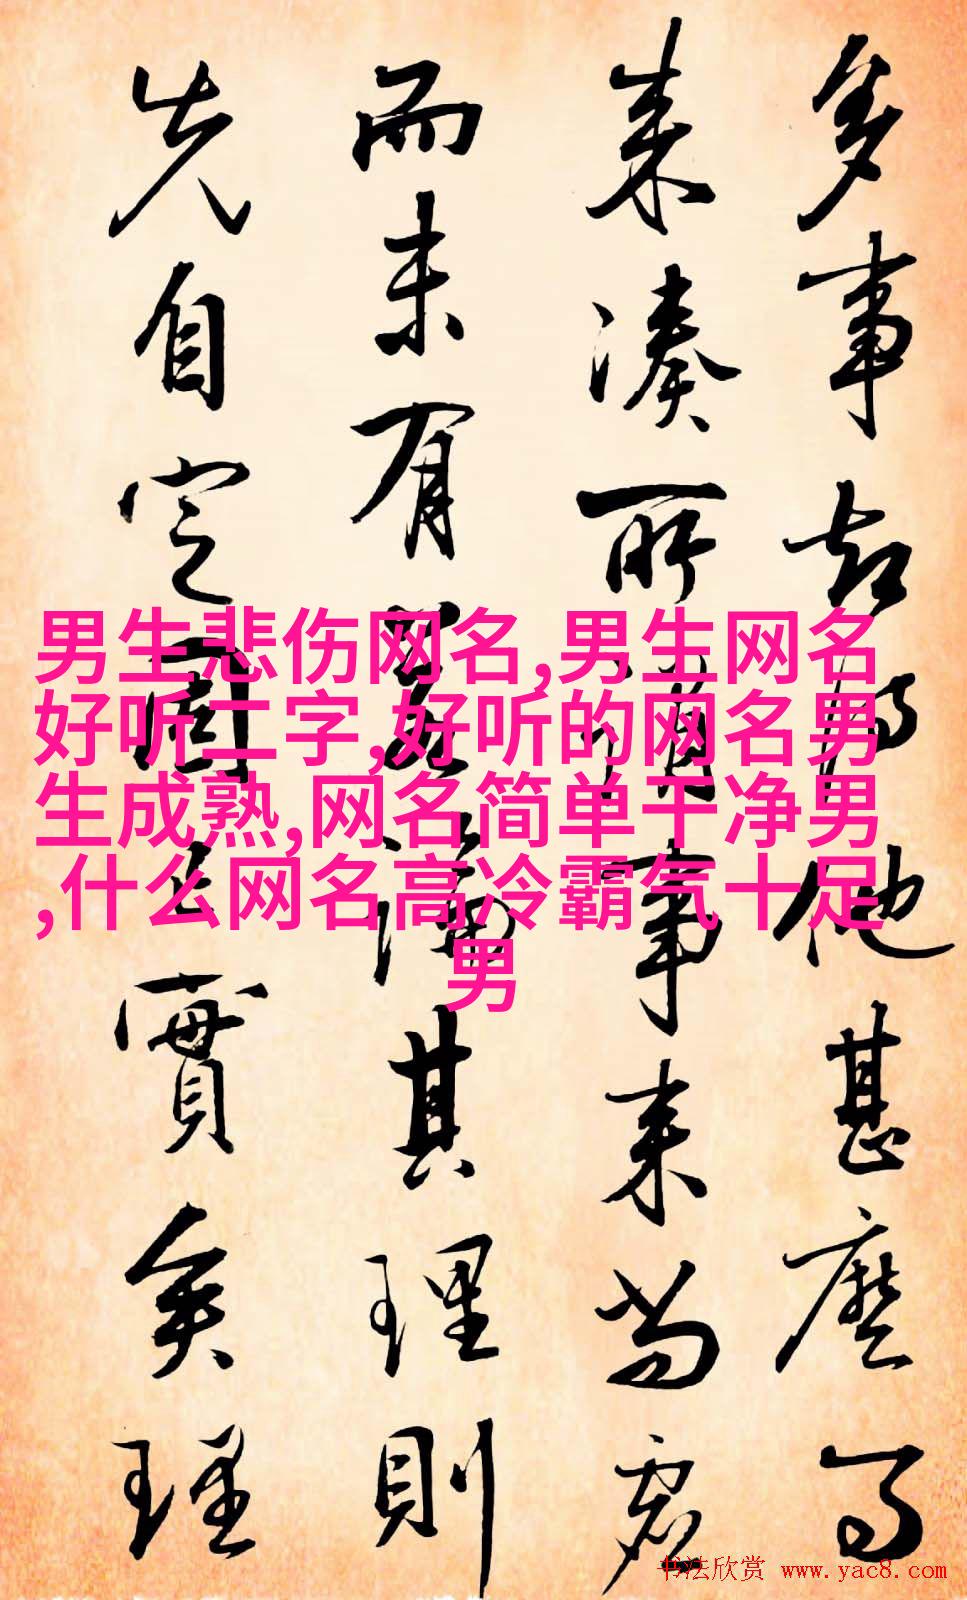 多事都待他甚麽事
来湊所謂事来尚虚
而未有若論其理則
先自定固已實矣理
男生悲伤网名,男生网名
好听二字,好听的网名男
生成熟,网名简单干净男
,什么网名高冷霸气十足
男
书法欣赏 www.yac8.com